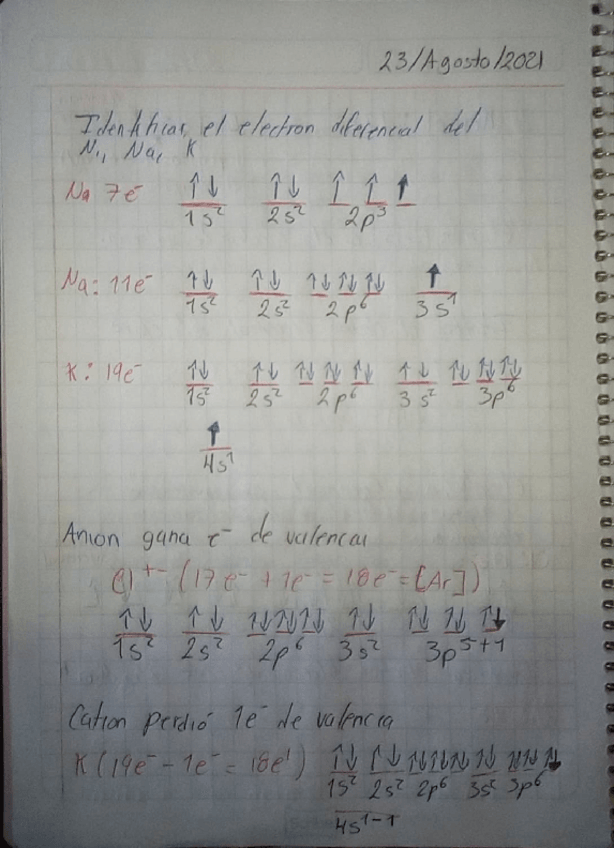 23/Agosto/2021
Identificar el electron diferencial del
N,, Na, K
Na 7e⁻ ↑↓ ↑↓ ↑ ↑ ↑
1s² 2s² 2p³
Na: 11e⁻ ↑↓ ↑↓ ↑↓ ↑↓ ↑↓ ↑
1s² 2s² 2p⁶ 3s¹
K: 19e⁻ ↑↓ ↑↓ ↑↓ ↑↓ ↑↓ ↑↓ ↑↓ ↑↓ ↑↓
1s² 2s² 2p⁶ 3s² 3p⁶
↑
4s¹
Anion gana e⁻ de valencia
Cl⁺⁻ (17e⁻ + 1e⁻ = 18e⁻ = [Ar])
↑↓ ↑↓ ↑↓ ↑↓ ↑↓ ↑↓ ↑↓ ↑↓ ↑↓
1s² 2s² 2p⁶ 3s² 3p⁵⁺¹
Cation perdió 1e⁻ de valencia
K (19e⁻ - 1e⁻ = 18e¹) ↑↓ ↑↓ ↑↓ ↑↓ ↑↓ ↑↓ ↑↓ ↑↓ ↑↓
1s² 2s² 2p⁶ 3s² 3p⁶
4s¹⁻¹